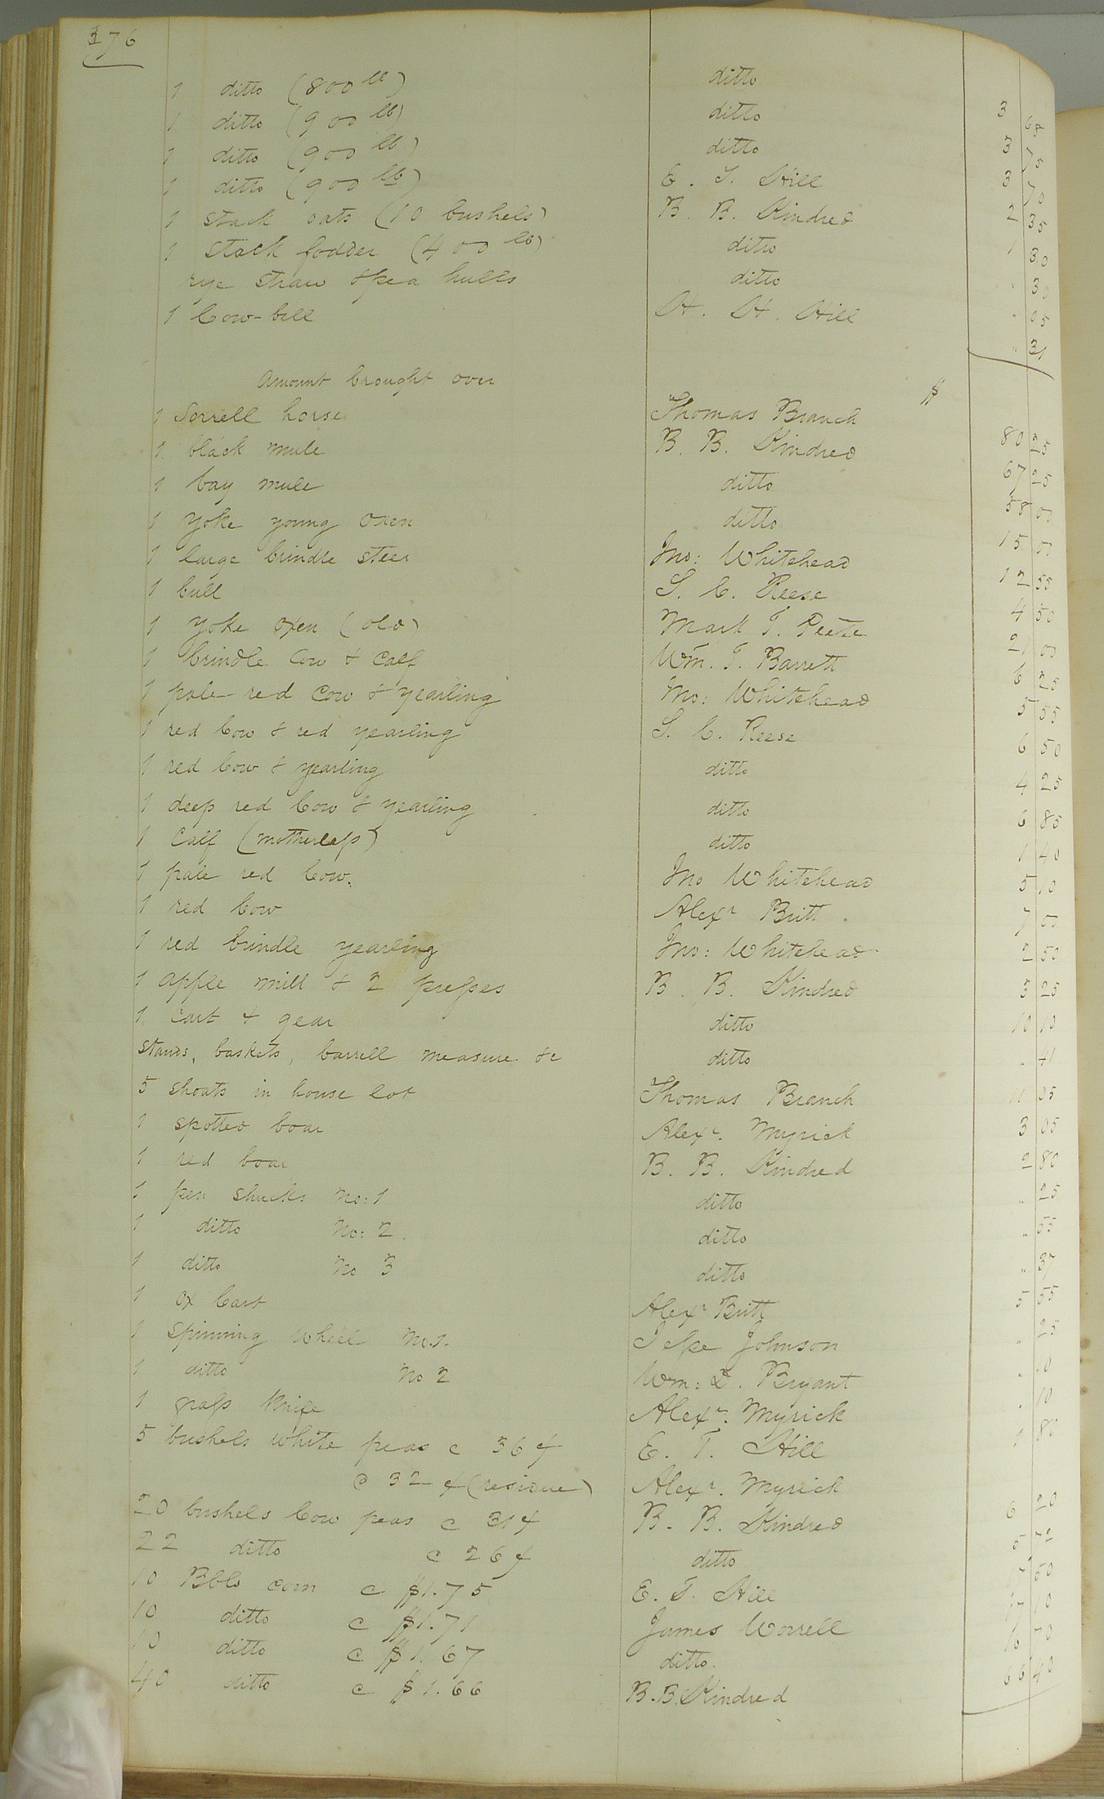 376
1 ditto (800 lb) ditto 3
1 ditto (900 lb) ditto 3 75
1 ditto (900 lb) ditto 3 70
1 ditto (900 lb) E. T. Hill 2 35
1 stack oats (10 bushels) B. B. Kindred 1 30
1 stack fodder (400 lb) ditto
rye straw & pea hulls ditto " 05
1 Cow-bell H. H. Hill " 31
Amount brought over $
1 Sorrell horse Thomas Branch 80 25
1 black mule B. B. Kindred 67 25
1 bay mule ditto 58 00
1 yoke young oxen ditto 15 00
1 large brindle steer Jno: Whitehead 12 55
1 bull S. C. Reese 4 50
1 yoke oxen (old) Mark T. Peete 21 00
1 brindle Cow & Calf Wm. T. Barrett 6 25
1 pale-red Cow & yearling Jno: Whitehead 5 55
1 red Cow & red yearling S. C. Reese 6 50
1 red Cow & yearling ditto 4 25
1 deep red Cow & yearling ditto 6 85
1 Calf (motherless) ditto 1 40
1 pale red Cow. Jno Whitehead 5 10
1 red Cow Alexr Britt. 7 00
1 red brindle yearling Jno: Whitehead 2 50
1 apple mill & 2 presses B. B. Kindred 5 25
1 Cart & gear ditto 10 10
Stands, baskets, barrell measure &c ditto " 41
5 shoats in house lot Thomas Branch 11 05
1 spotted boar Alexr. Myrick 3 05
1 red boar B. B. Kindred 2 80
1 pen shucks No: 1 ditto " 25
1 ditto No: 2. ditto " 55
1 ditto No 3 ditto " 37
1 ox Cart Alexr Britt 5 55
1 Spinning Wheel No. 1. Johnson " 25
1 ditto No 2 Wm: D. Bryant "
1 grass knife Alexr. Myrick " 10
5 bushels white peas @ 36 ¢ E. T. Hill 1 80
@ 32 ¢ (residue) Alexr. Myrick
20 bushels Cow peas @ 31 ¢ B. B. Kindred 6 20
22 ditto @ 26 ¢ ditto 5 72
10 Bbls corn @ $1.75 E. T. Hill 17 50
10 ditto @ $1.71 James Worrell 17 10
10 ditto @ $1.67 ditto. 16 70
40 ditto @ $1.66 B. B. Kindred 66 40